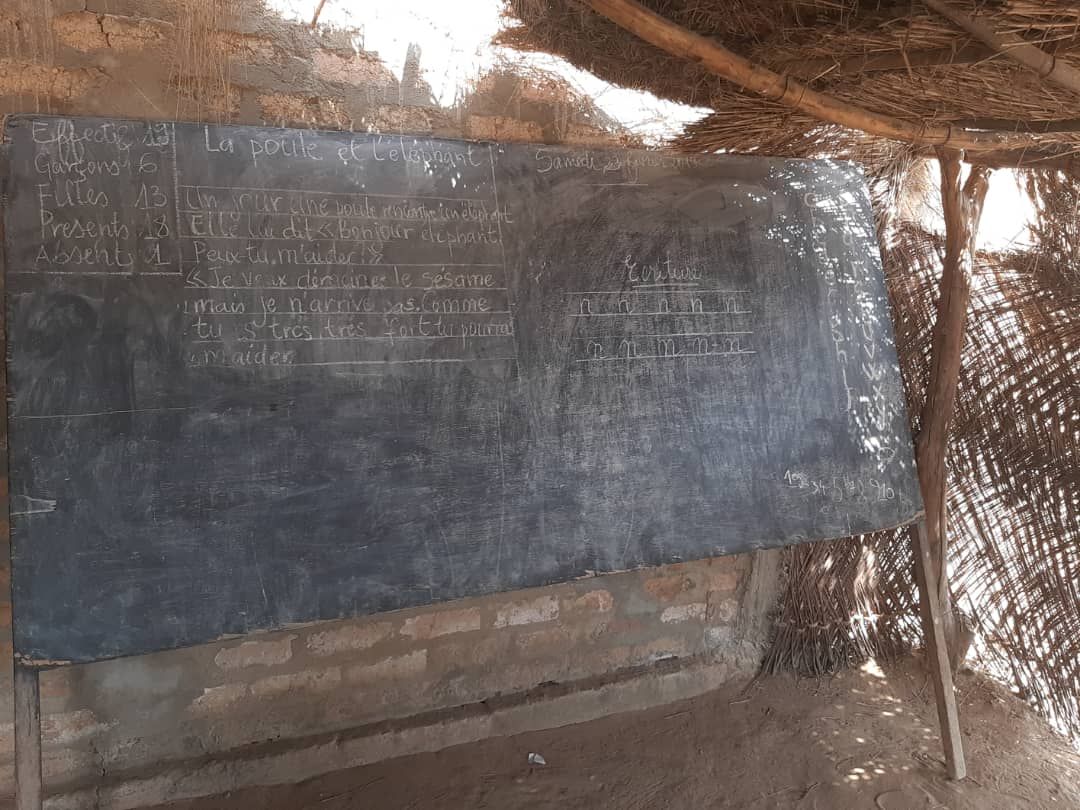 Effectif 19
Garçons 6
Filles 13
Presents 18
Absent 1
La poule et l'éléphant
Un jour une poule rencontre un éléphant
Elle lui dit « Bonjour éléphant.
Peux-tu m'aider ? »
« Je veux déraciner le sésame
mais je n'arrive pas. Comme
tu es très très fort tu pourras
m'aider.
Samedi
Ecriture
n n n n n
n n n n n